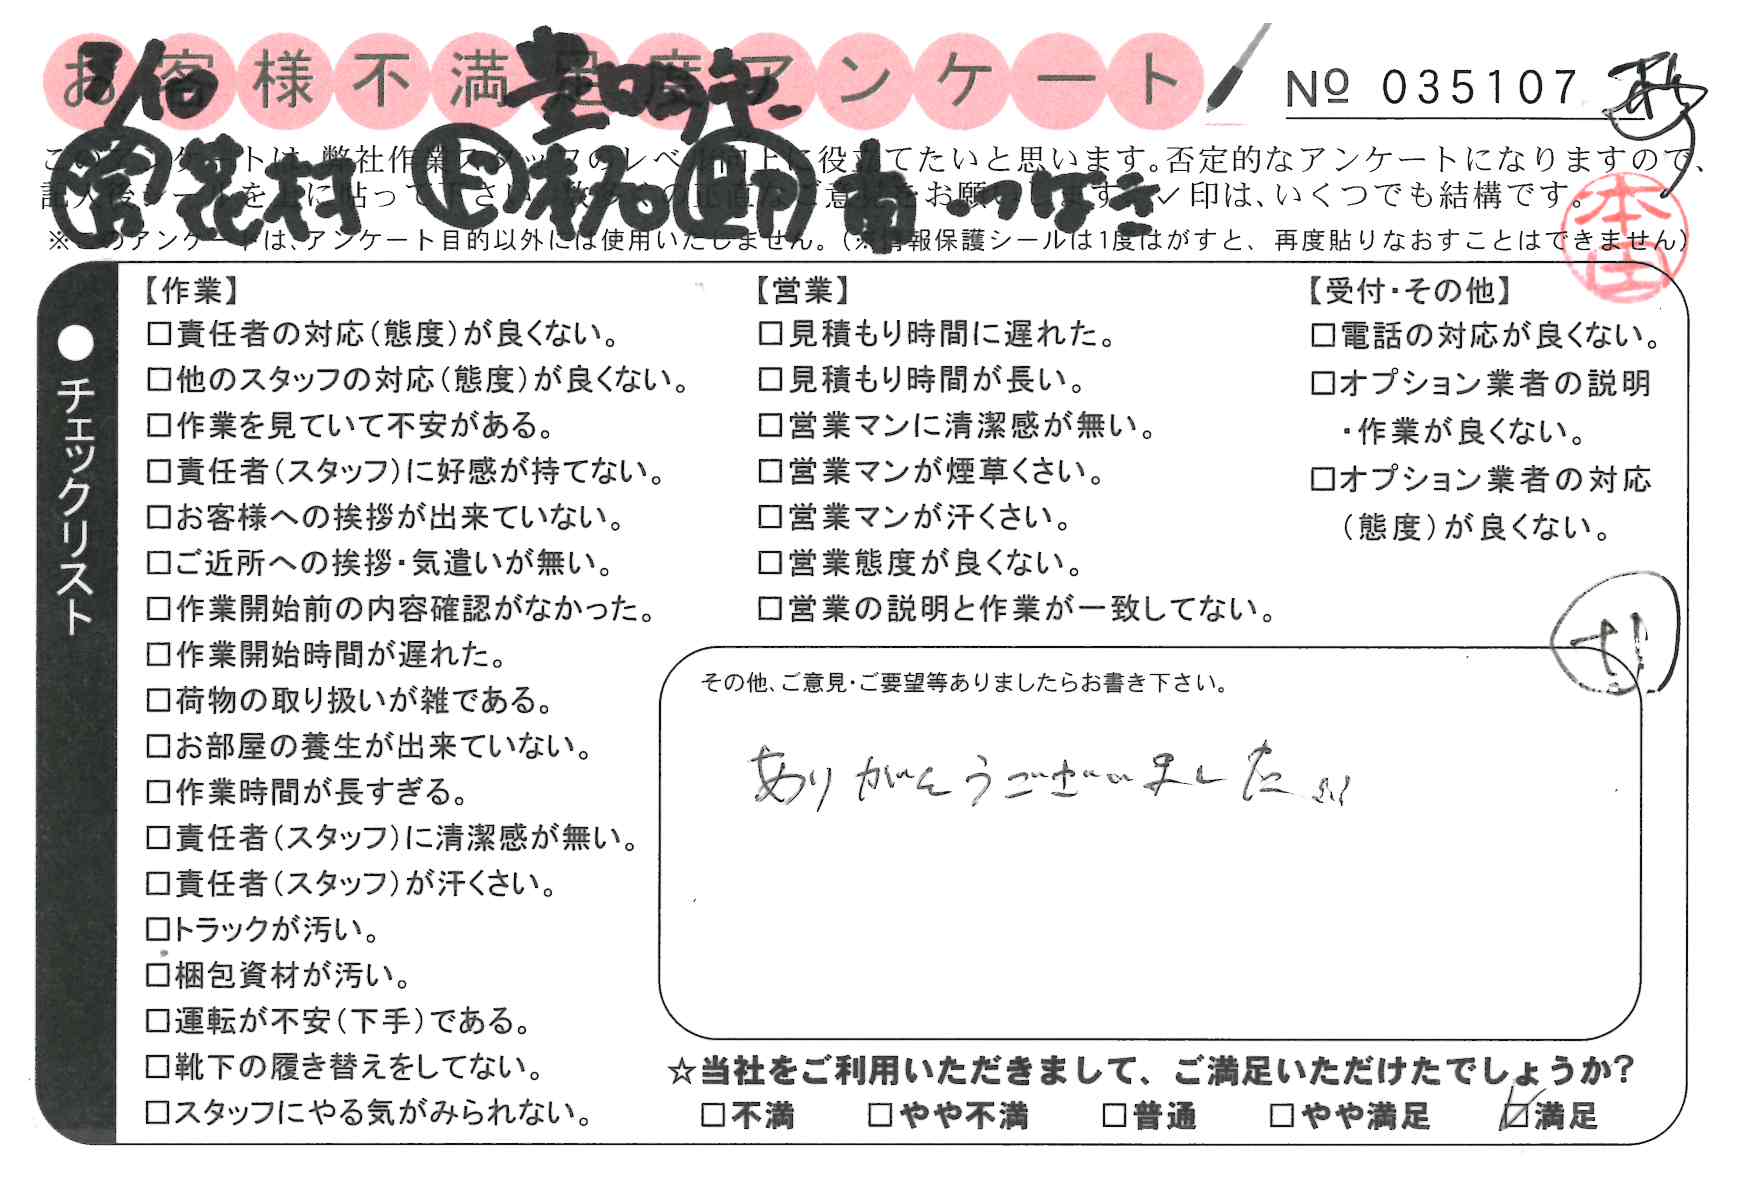 お客様不満足度アンケート
№ 035107
このアンケートは、弊社作業スタッフのレベル向上に役立てたいと思います。否定的なアンケートになりますので、
記入後シールを上に貼って下さい。数多くの正直なご意見をお願いします。✓印は、いくつでも結構です。
※このアンケートは、アンケート目的以外には使用いたしません。（※情報保護シールは1度はがすと、再度貼りなおすことはできません）
本田
●チェックリスト
【作業】
□責任者の対応（態度）が良くない。
□他のスタッフの対応（態度）が良くない。
□作業を見ていて不安がある。
□責任者（スタッフ）に好感が持てない。
□お客様への挨拶が出来ていない。
□ご近所への挨拶・気遣いが無い。
□作業開始前の内容確認がなかった。
□作業開始時間が遅れた。
□荷物の取り扱いが雑である。
□お部屋の養生が出来ていない。
□作業時間が長すぎる。
□責任者（スタッフ）に清潔感が無い。
□責任者（スタッフ）が汗くさい。
□トラックが汚い。
□梱包資材が汚い。
□運転が不安（下手）である。
□靴下の履き替えをしてない。
□スタッフにやる気がみられない。
【営業】
□見積もり時間に遅れた。
□見積もり時間が長い。
□営業マンに清潔感が無い。
□営業マンが煙草くさい。
□営業マンが汗くさい。
□営業態度が良くない。
□営業の説明と作業が一致してない。
【受付・その他】
□電話の対応が良くない。
□オプション業者の説明
・作業が良くない。
□オプション業者の対応
（態度）が良くない。
その他、ご意見・ご要望等ありましたらお書き下さい。
ありがとうございました
☆当社をご利用いただきまして、ご満足いただけたでしょうか?
□不満 □やや不満 □普通 □やや満足 ☑満足